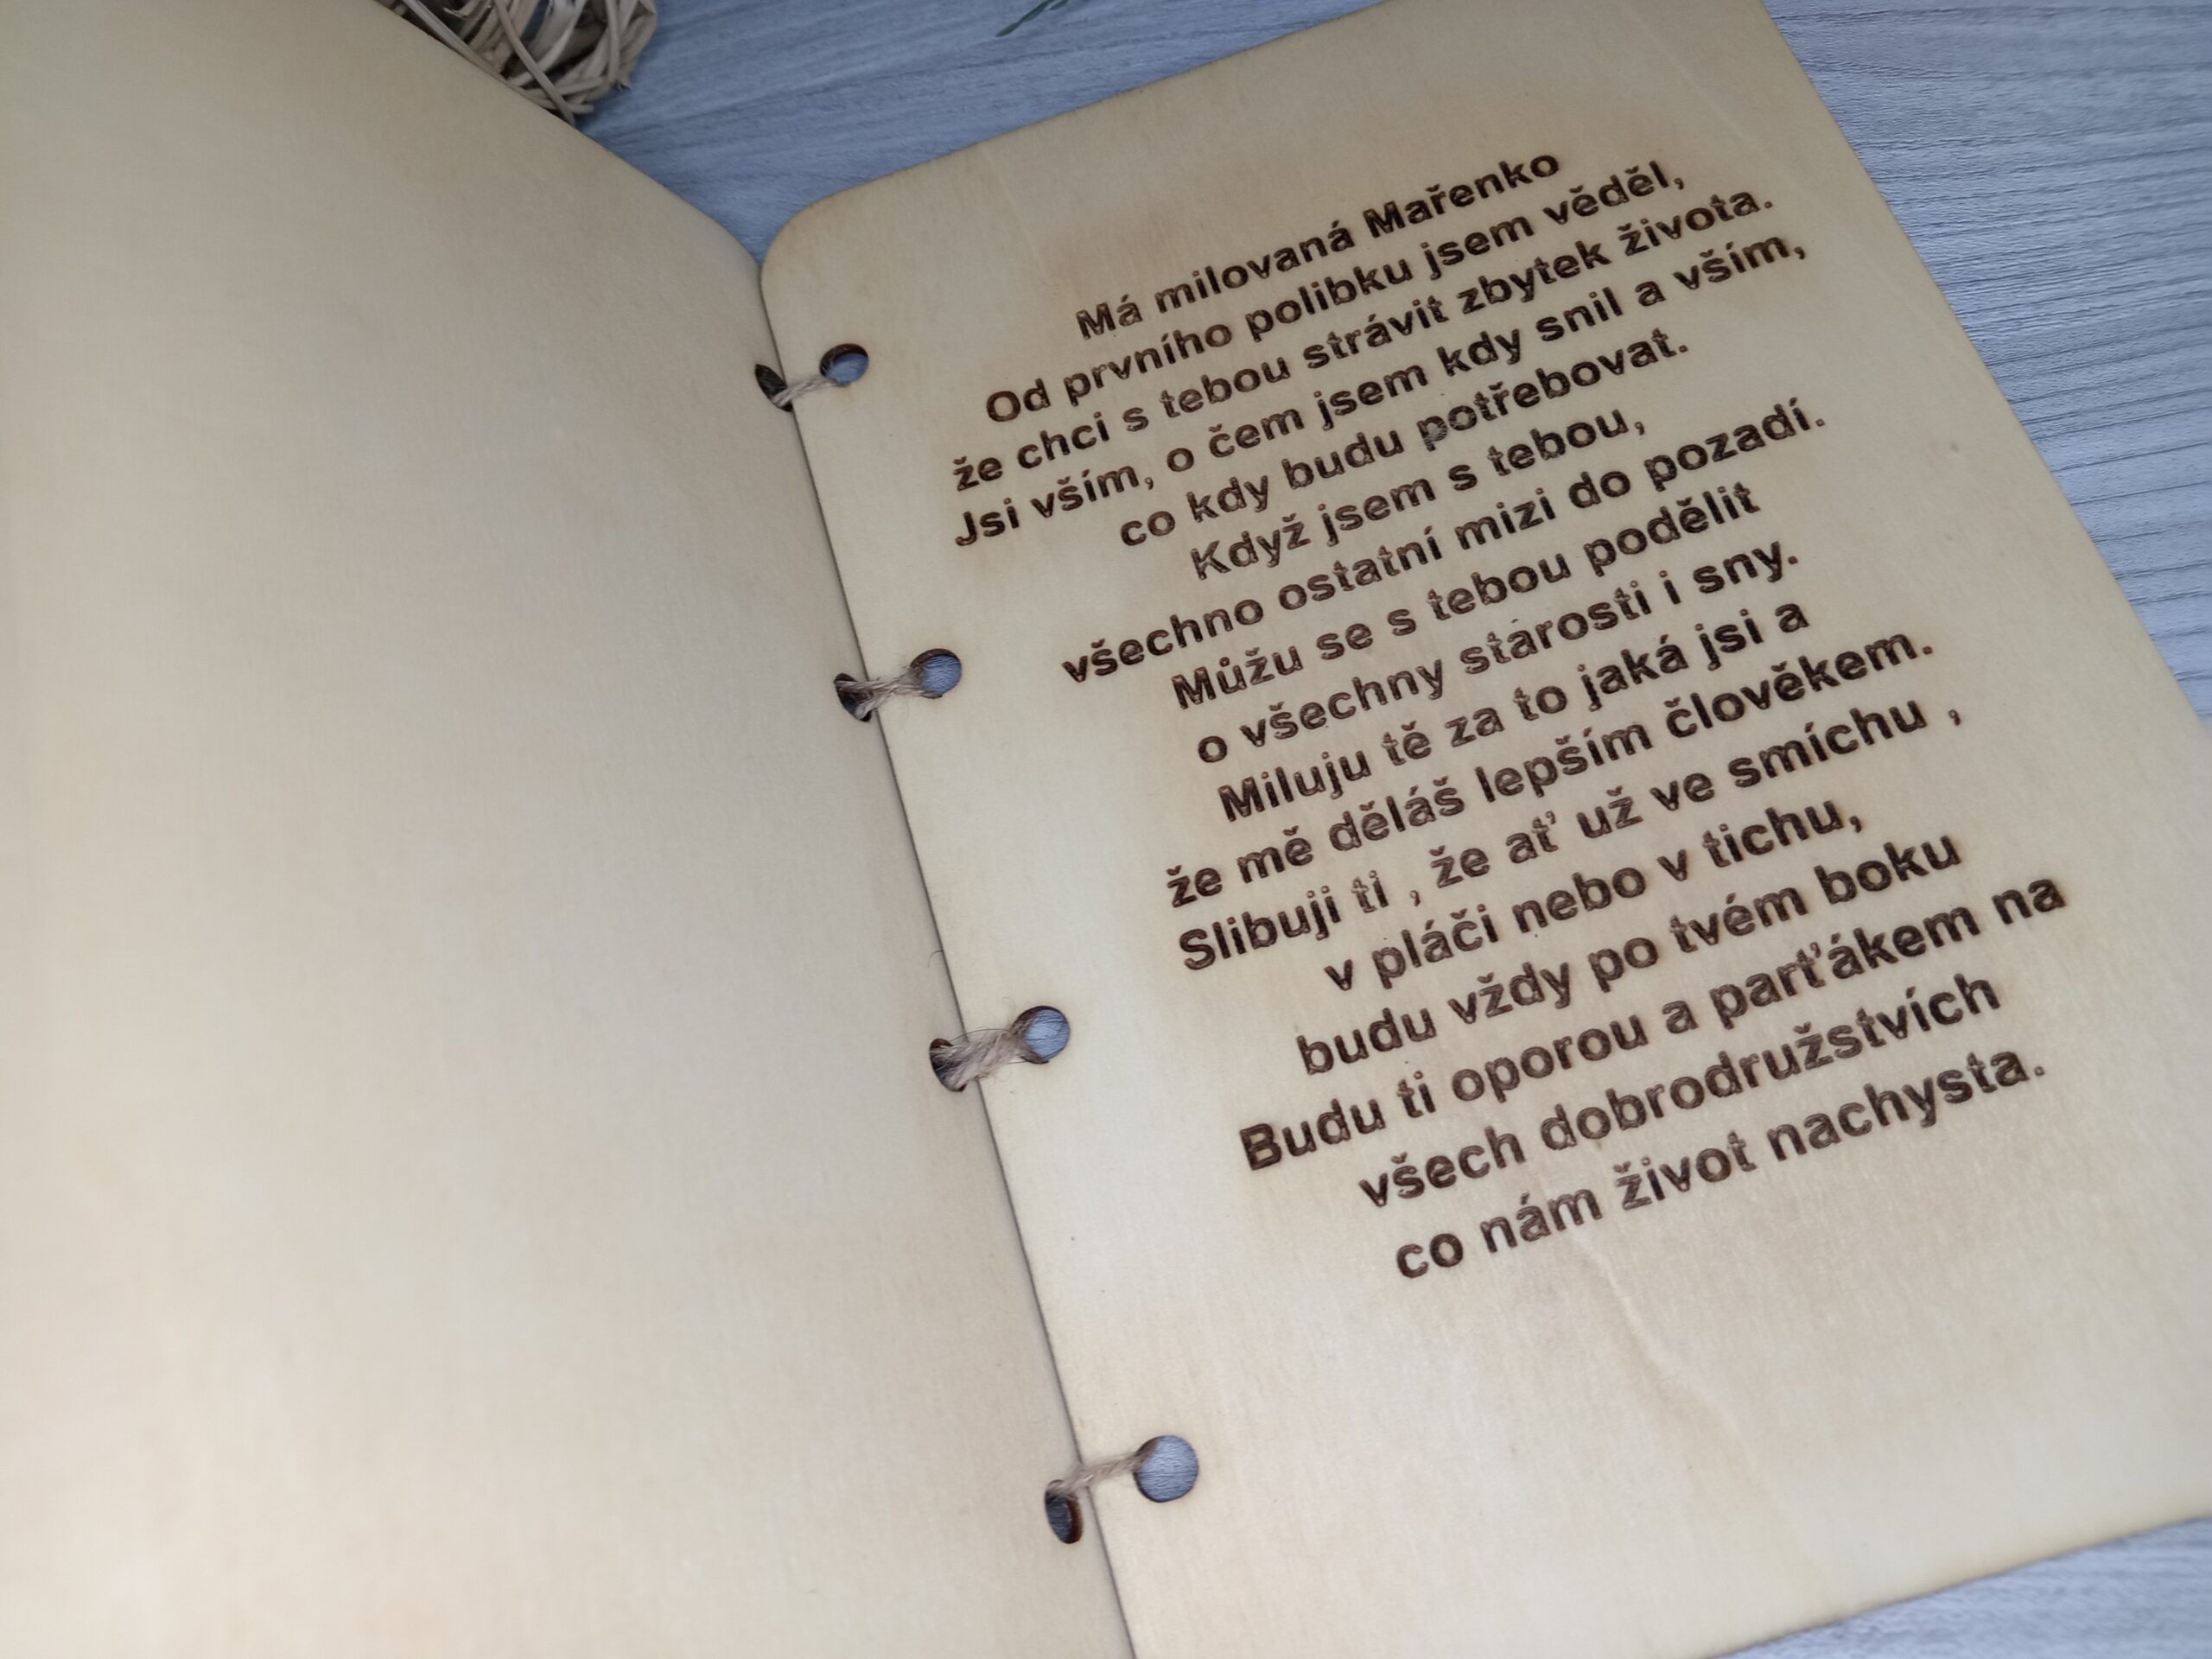 Má milovaná Mařenko
Od prvního polibku jsem věděl,
že chci s tebou strávit zbytek života.
Jsi vším, o čem jsem kdy snil a vším,
co kdy budu potřebovat.
Když jsem s tebou,
všechno ostatní mizi do pozadí.
Můžu se s tebou podělit
o všechny starosti i sny.
Miluju tě za to jaká jsi a
že mě děláš lepším člověkem.
Slibuji ti , že ať už ve smíchu ,
v pláči nebo v tichu,
budu vždy po tvém boku
Budu ti oporou a parťákem na
všech dobrodružstvích
co nám život nachysta.